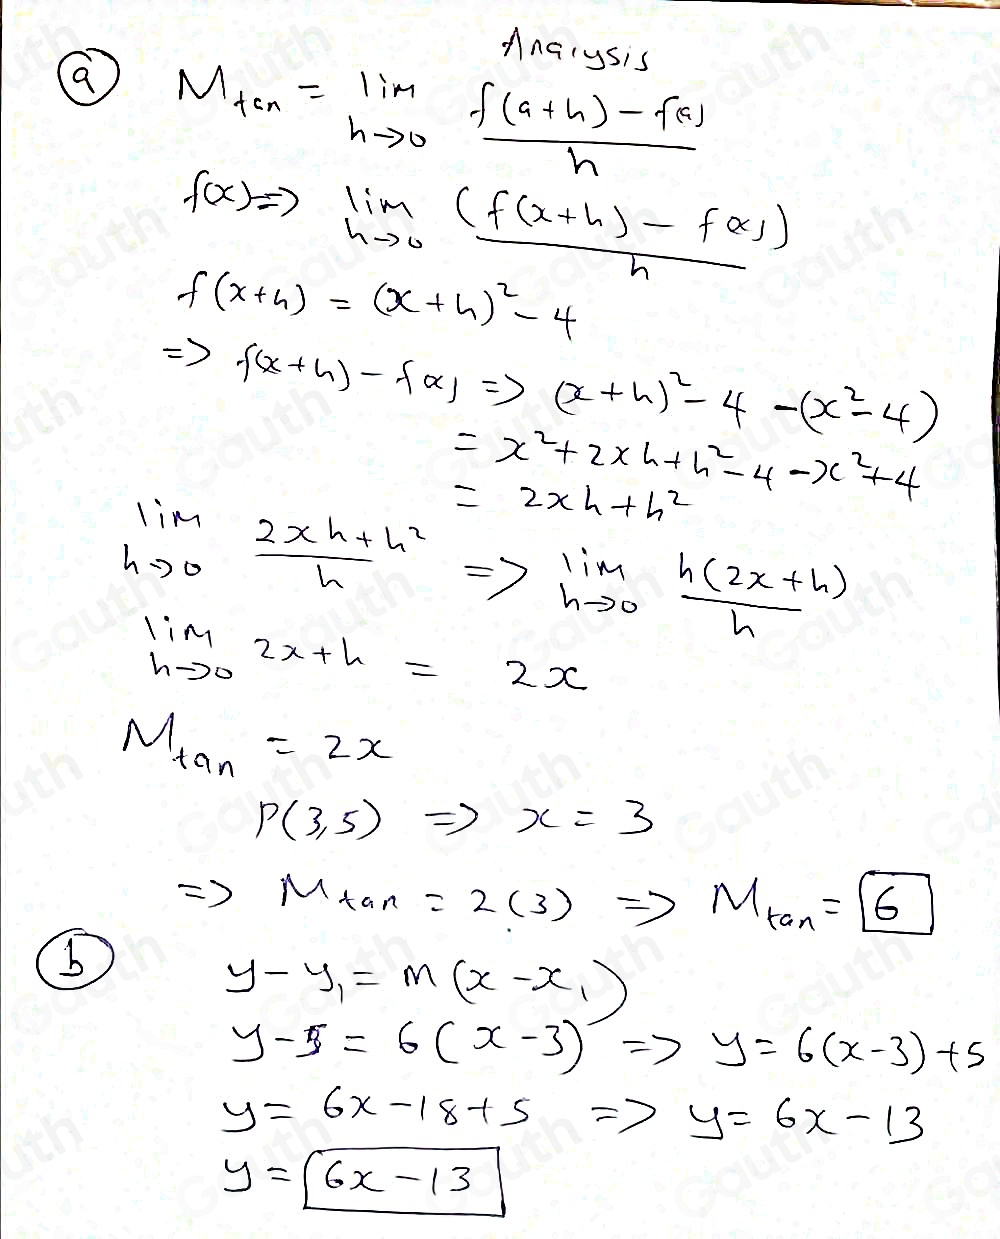 Analysis
(a) M_tan = lim h→0 (f(a+h) - f(a))/h
f(x) => lim h→0 (f(x+h) - f(x))/h
f(x+h) = (x+h)² - 4
=> f(x+h) - f(x) => (x+h)² - 4 - (x² - 4)
= x² + 2xh + h² - 4 - x² + 4
= 2xh + h²
lim h→0 (2xh + h²)/h => lim h→0 h(2x+h)/h
lim h→0 2x+h = 2x
M_tan = 2x
P(3,5) => x = 3
=> M_tan = 2(3) => M_tan = 6
(b) y - y₁ = m(x - x₁)
y - 5 = 6(x - 3) => y = 6(x-3) + 5
y = 6x - 18 + 5 => y = 6x - 13
y = 6x - 13
Gauth